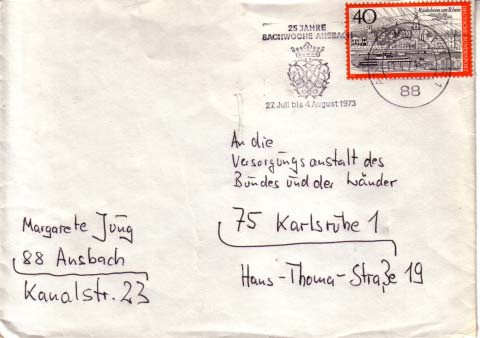 25 JAHRE
BACHWOCHE ANSBACH
27. Juli bis 4. August 1973
40
Rüdesheim am Rhein
DEUTSCHE BUNDESPOST
88
1
An die
Versorgungsanstalt des
Bundes und der Länder
75 Karlsruhe 1
Hans-Thoma-Straße 19
Margarete Jung
88 Ansbach
Kanalstr. 23